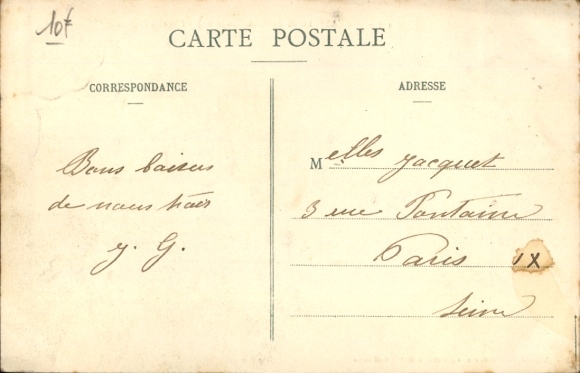 10F
CARTE POSTALE
CORRESPONDANCE
ADRESSE
Bons baisers
de nous trois
J. G.
Melles Jacquet
3 rue Fontaine
Paris IX
Seine